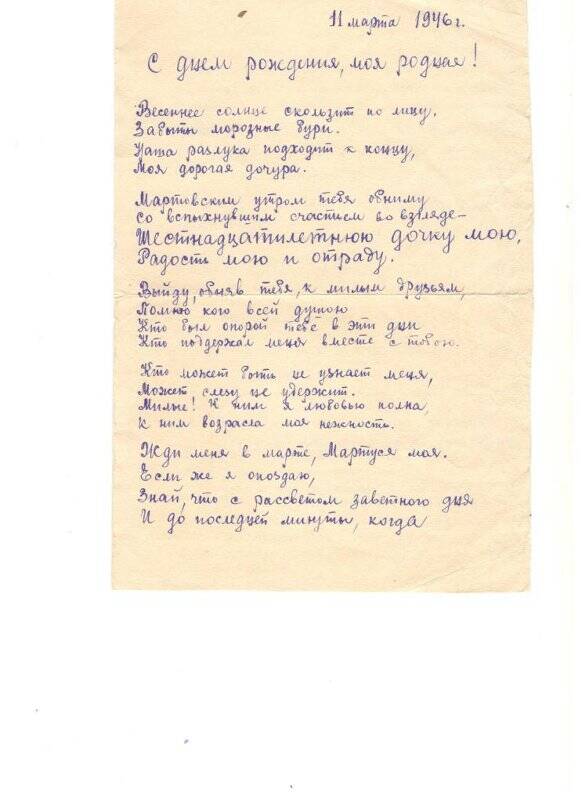 11 марта 1946 г.
С днем рождения, моя родная!
Весеннее солнце скользит по лицу,
Забыты морозные бури.
Наша разлука подходит к концу,
Моя дорогая дочура.
Мартовским утром тебя обниму
Со вспыхнувшим счастьем во взгляде—
Шестнадцатилетнюю дочку мою,
Радость мою и отраду.
Выйду, обняв тебя, к милым друзьям,
Помню кого всей душою
Кто был опорой тебе в эти дни
Кто поддержал меня вместе с тобою.
Кто может быть не узнает меня,
Может, слезу не удержит.
Милые! К ним я любовью полна,
К ним возрасла моя нежность.
Жди меня в марте, Мартуся моя.
Если же я опоздаю,
Знай, что с рассветом заветного дня
И до последней минуты, когда